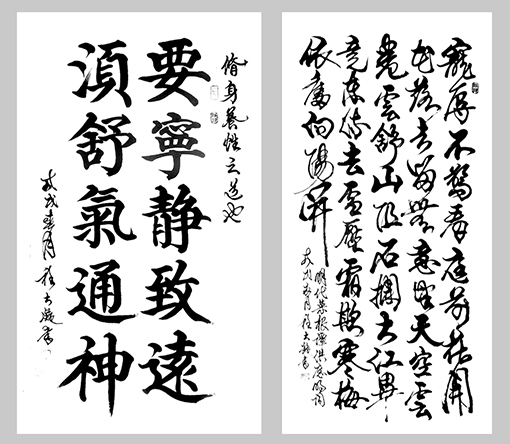 脩身養性之道也
要寧靜致遠
湏舒氣通神
戊戌春月
寵辱不驚看庭前花開
花落去留無意望天空雲
卷雲舒山阻石攔大江畢
竟東流去雪壓霜欺寒梅
依舊向陽開
明代菜根譚洪應明詞
戊戌春月